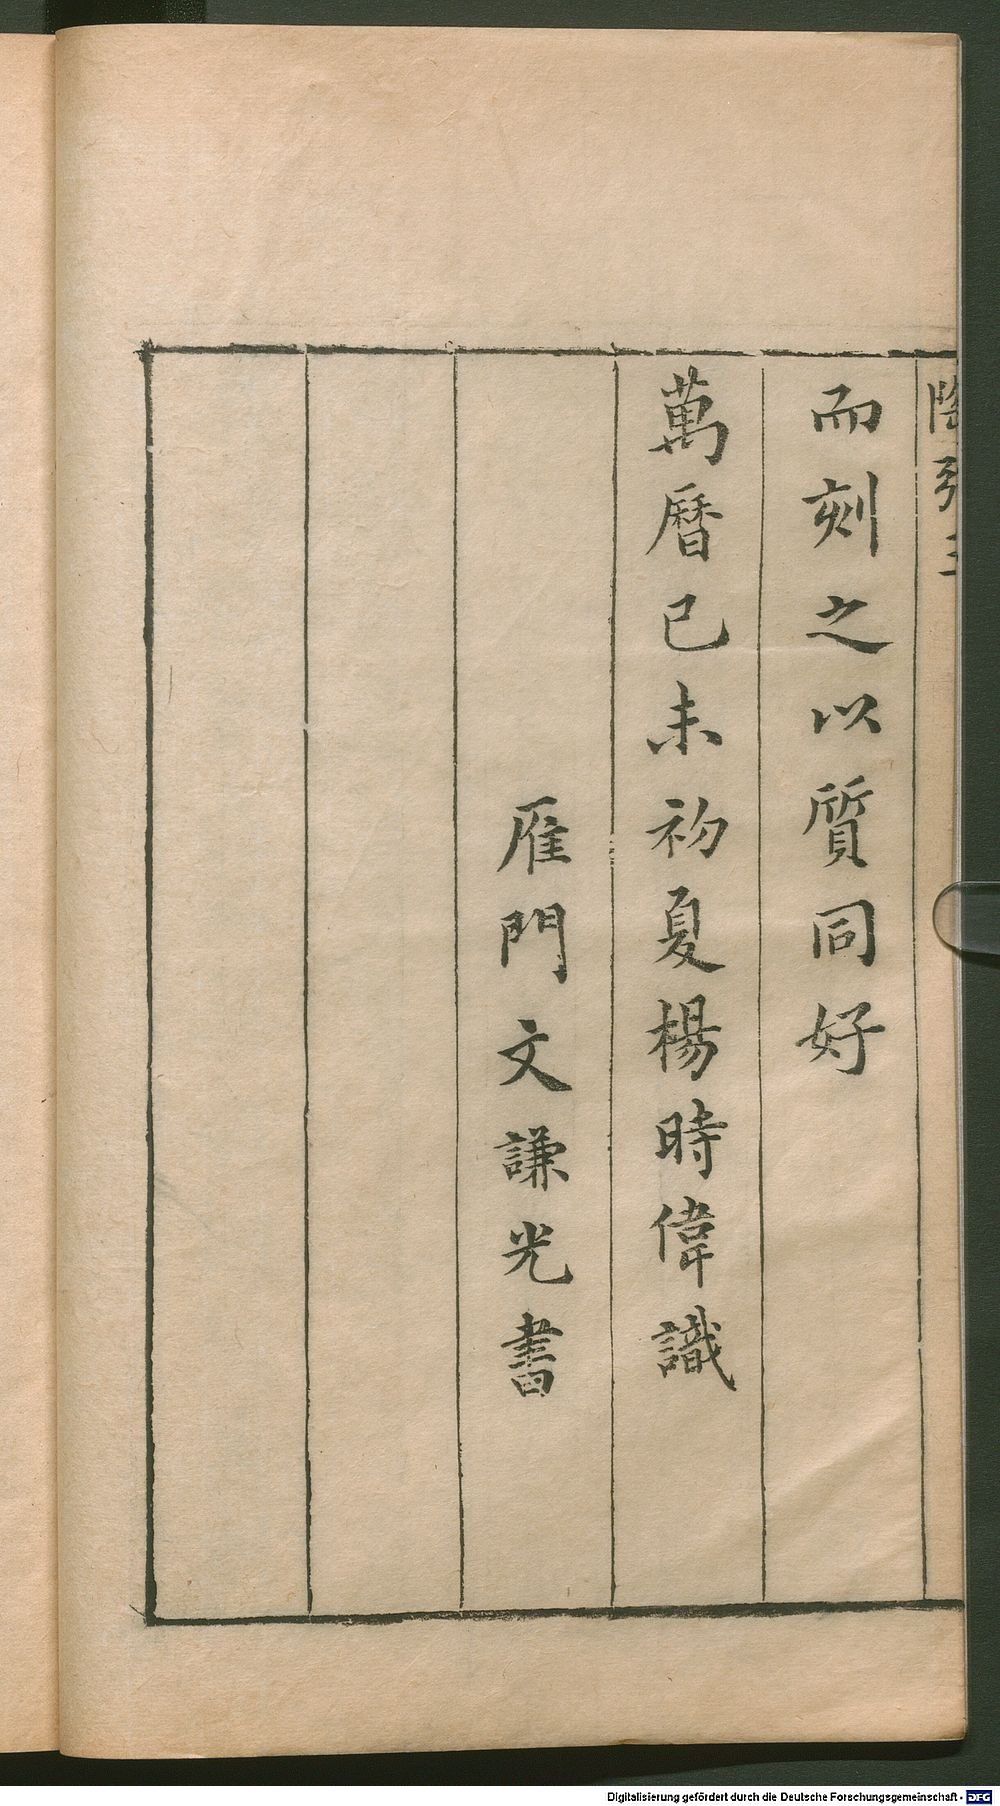 而刻之以質同好
萬曆己未初夏楊時偉識
雁門文謙光書
Digitalisierung gefördert durch die Deutsche Forschungsgemeinschaft - DFG